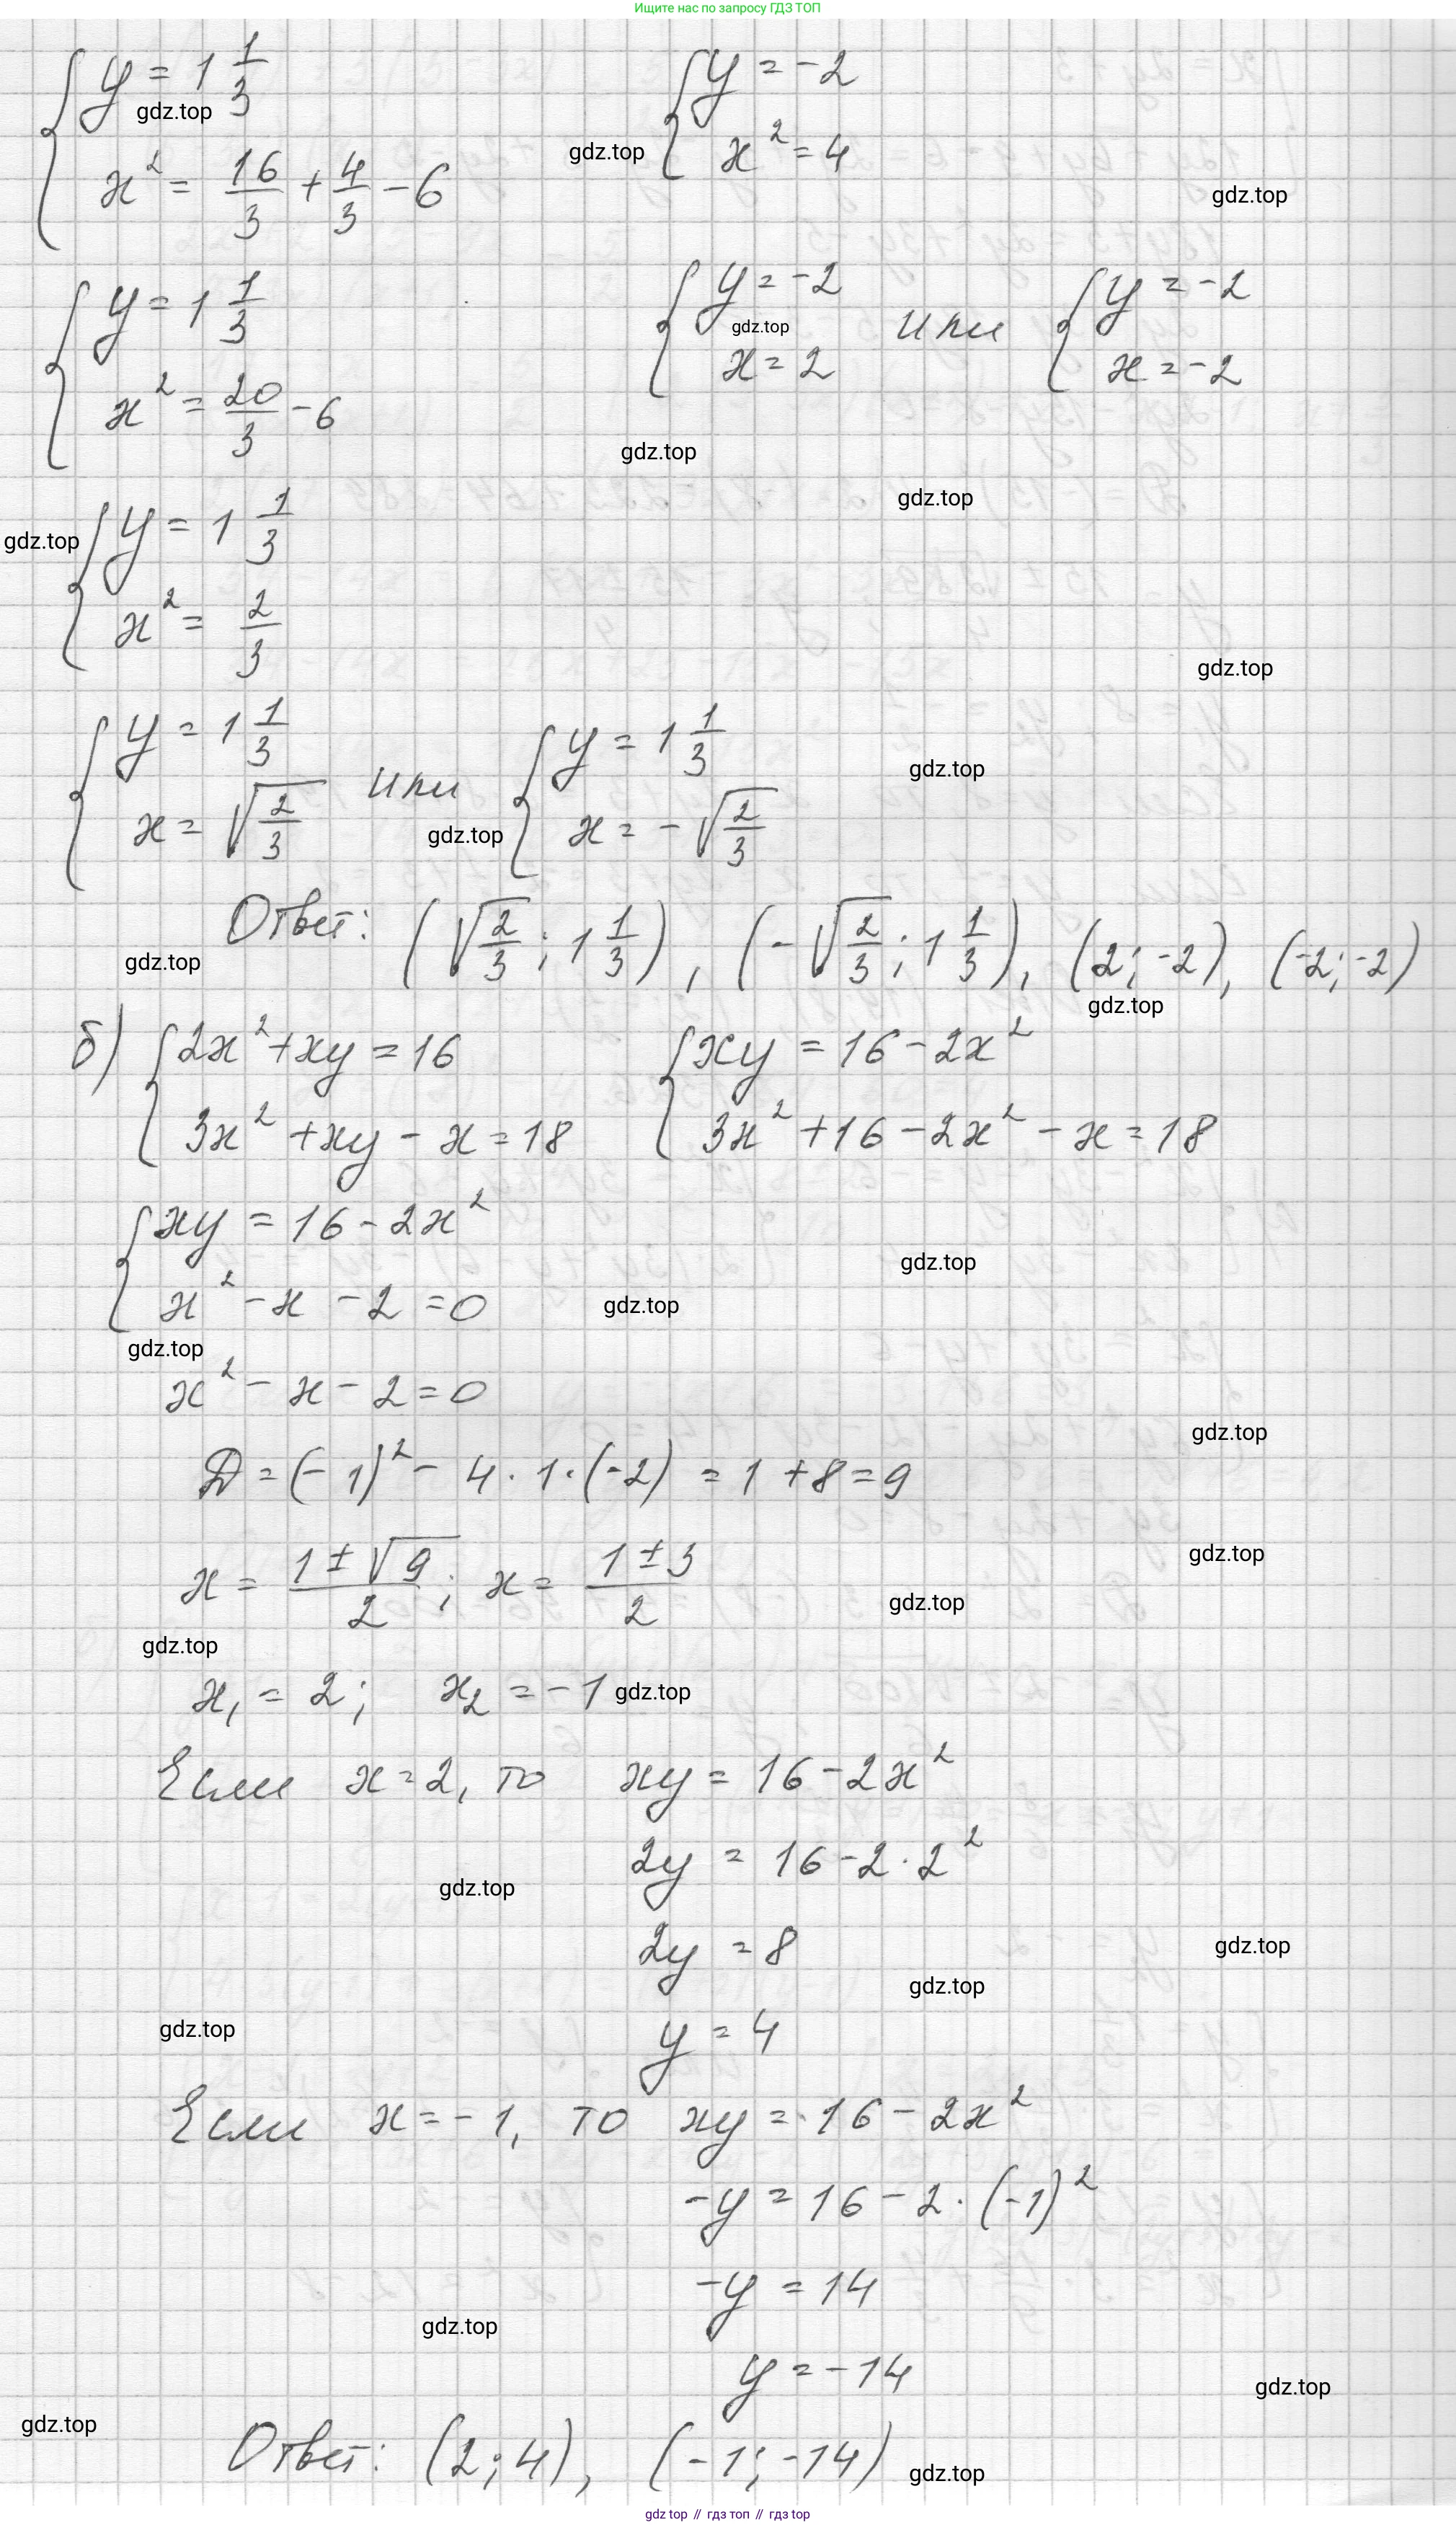 Ищите нас по запросу ГДЗ ТОП
y = 1 1/3
gdz.top
x² = 16/3 + 4/3 − 6
y = −2
gdz.top
x² = 4
gdz.top
y = 1 1/3
x² = 20/3 − 6
y = −2
gdz.top
x = 2
или
y = −2
x = −2
gdz.top
gdz.top
gdz.top
y = 1 1/3
x² = 2/3
gdz.top
y = 1 1/3
x = √(2/3)
или
gdz.top
y = 1 1/3
x = −√(2/3)
gdz.top
Ответ: (√(2/3); 1 1/3), (−√(2/3); 1 1/3), (2; −2), (−2; −2)
gdz.top
gdz.top
б) { 2x² + xy = 16
3x² + xy − x = 18
{ xy = 16 − 2x²
3x² + 16 − 2x² − x = 18
{ xy = 16 − 2x²
gdz.top
x² − x − 2 = 0
gdz.top
gdz.top
x² − x − 2 = 0
gdz.top
D = (−1)² − 4 · 1 · (−2) = 1 + 8 = 9
gdz.top
x = (1 ± √9)/2; x = (1 ± 3)/2
gdz.top
gdz.top
x₁ = 2; x₂ = −1
gdz.top
Если x = 2, то xy = 16 − 2x²
2y = 16 − 2 · 2²
gdz.top
2y = 8
gdz.top
gdz.top
gdz.top
y = 4
Если x = −1, то xy = 16 − 2x²
−y = 16 − 2 · (−1)²
−y = 14
gdz.top
y = −14
gdz.top
gdz.top
Ответ: (2; 4), (−1; −14)
gdz.top
gdz top // гдз топ // gdz top